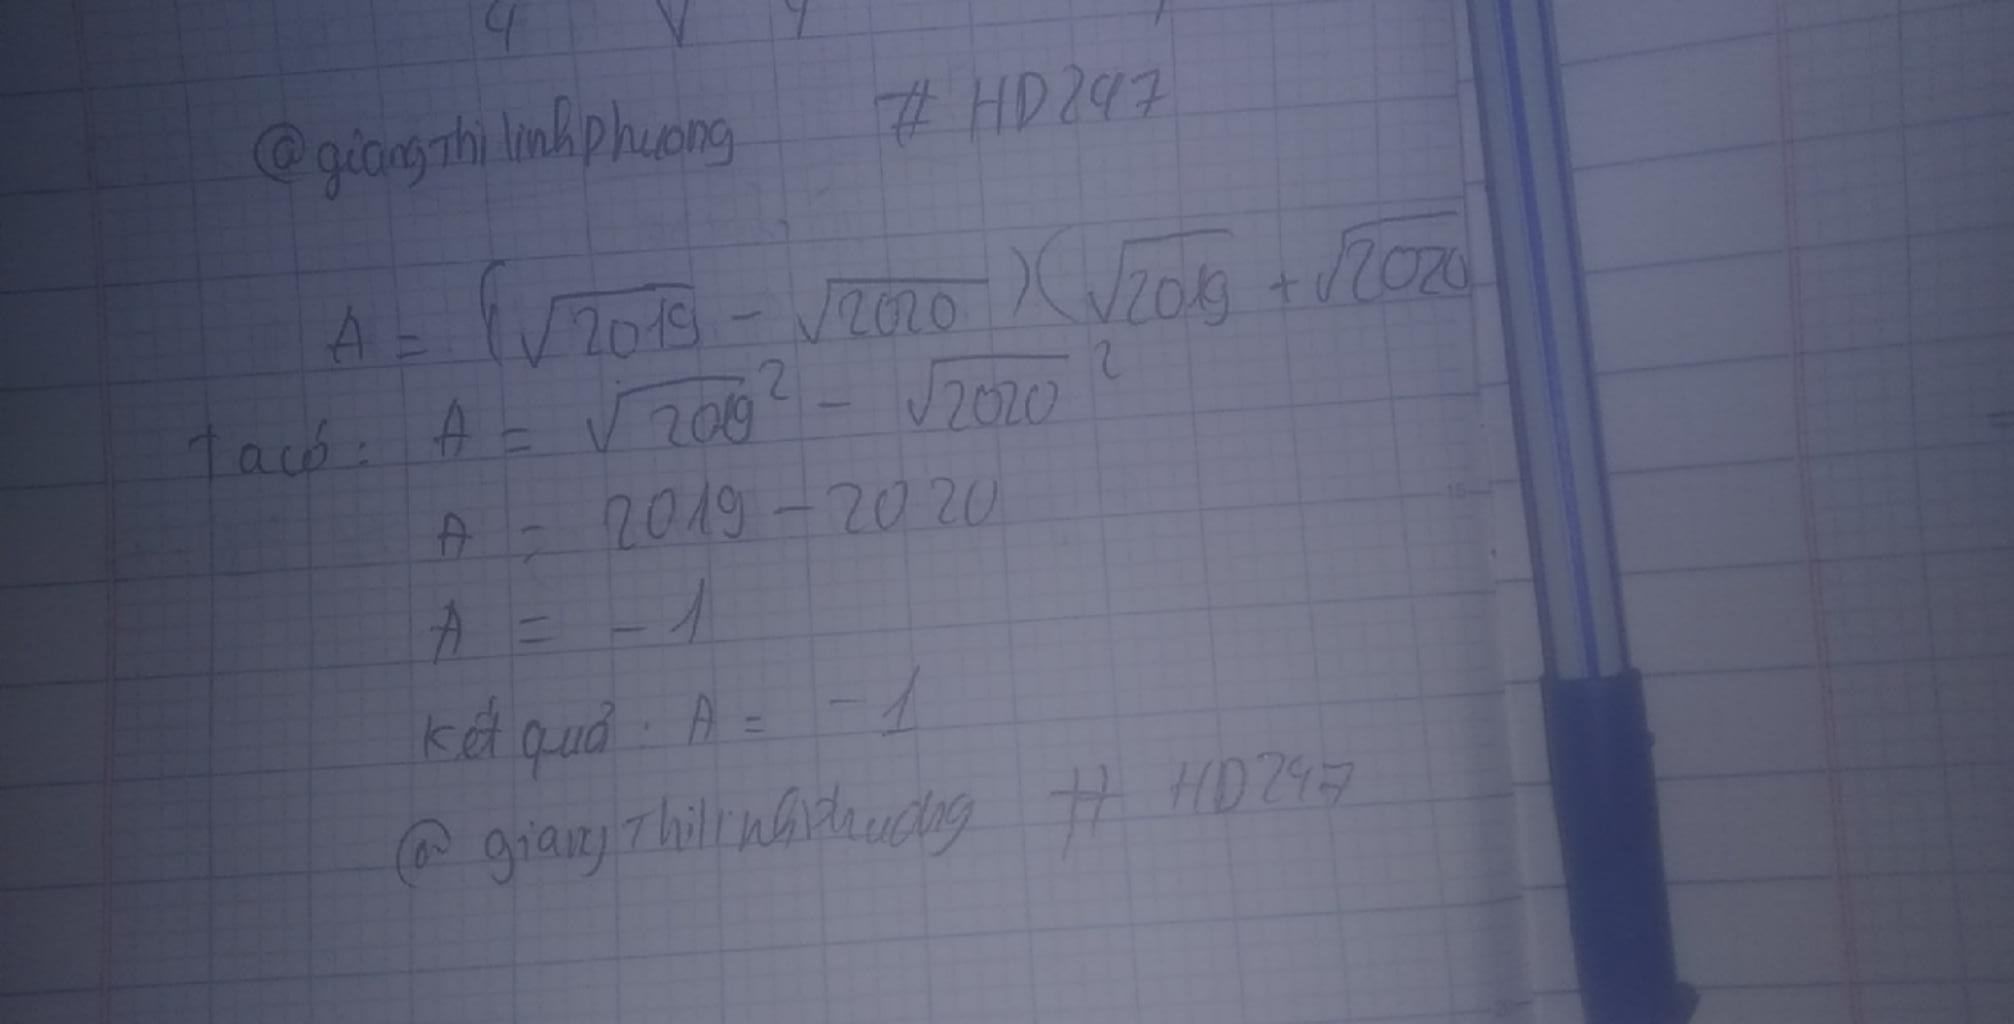 @giangThilinhphuong # HD247
A = (√2019 - √2020)(√2019 + √2020
Ta có: A = √2019² - √2020²
A = 2019 - 2020
A = -1
Kết quả: A = -1
@giangThilinhphuong # HD247